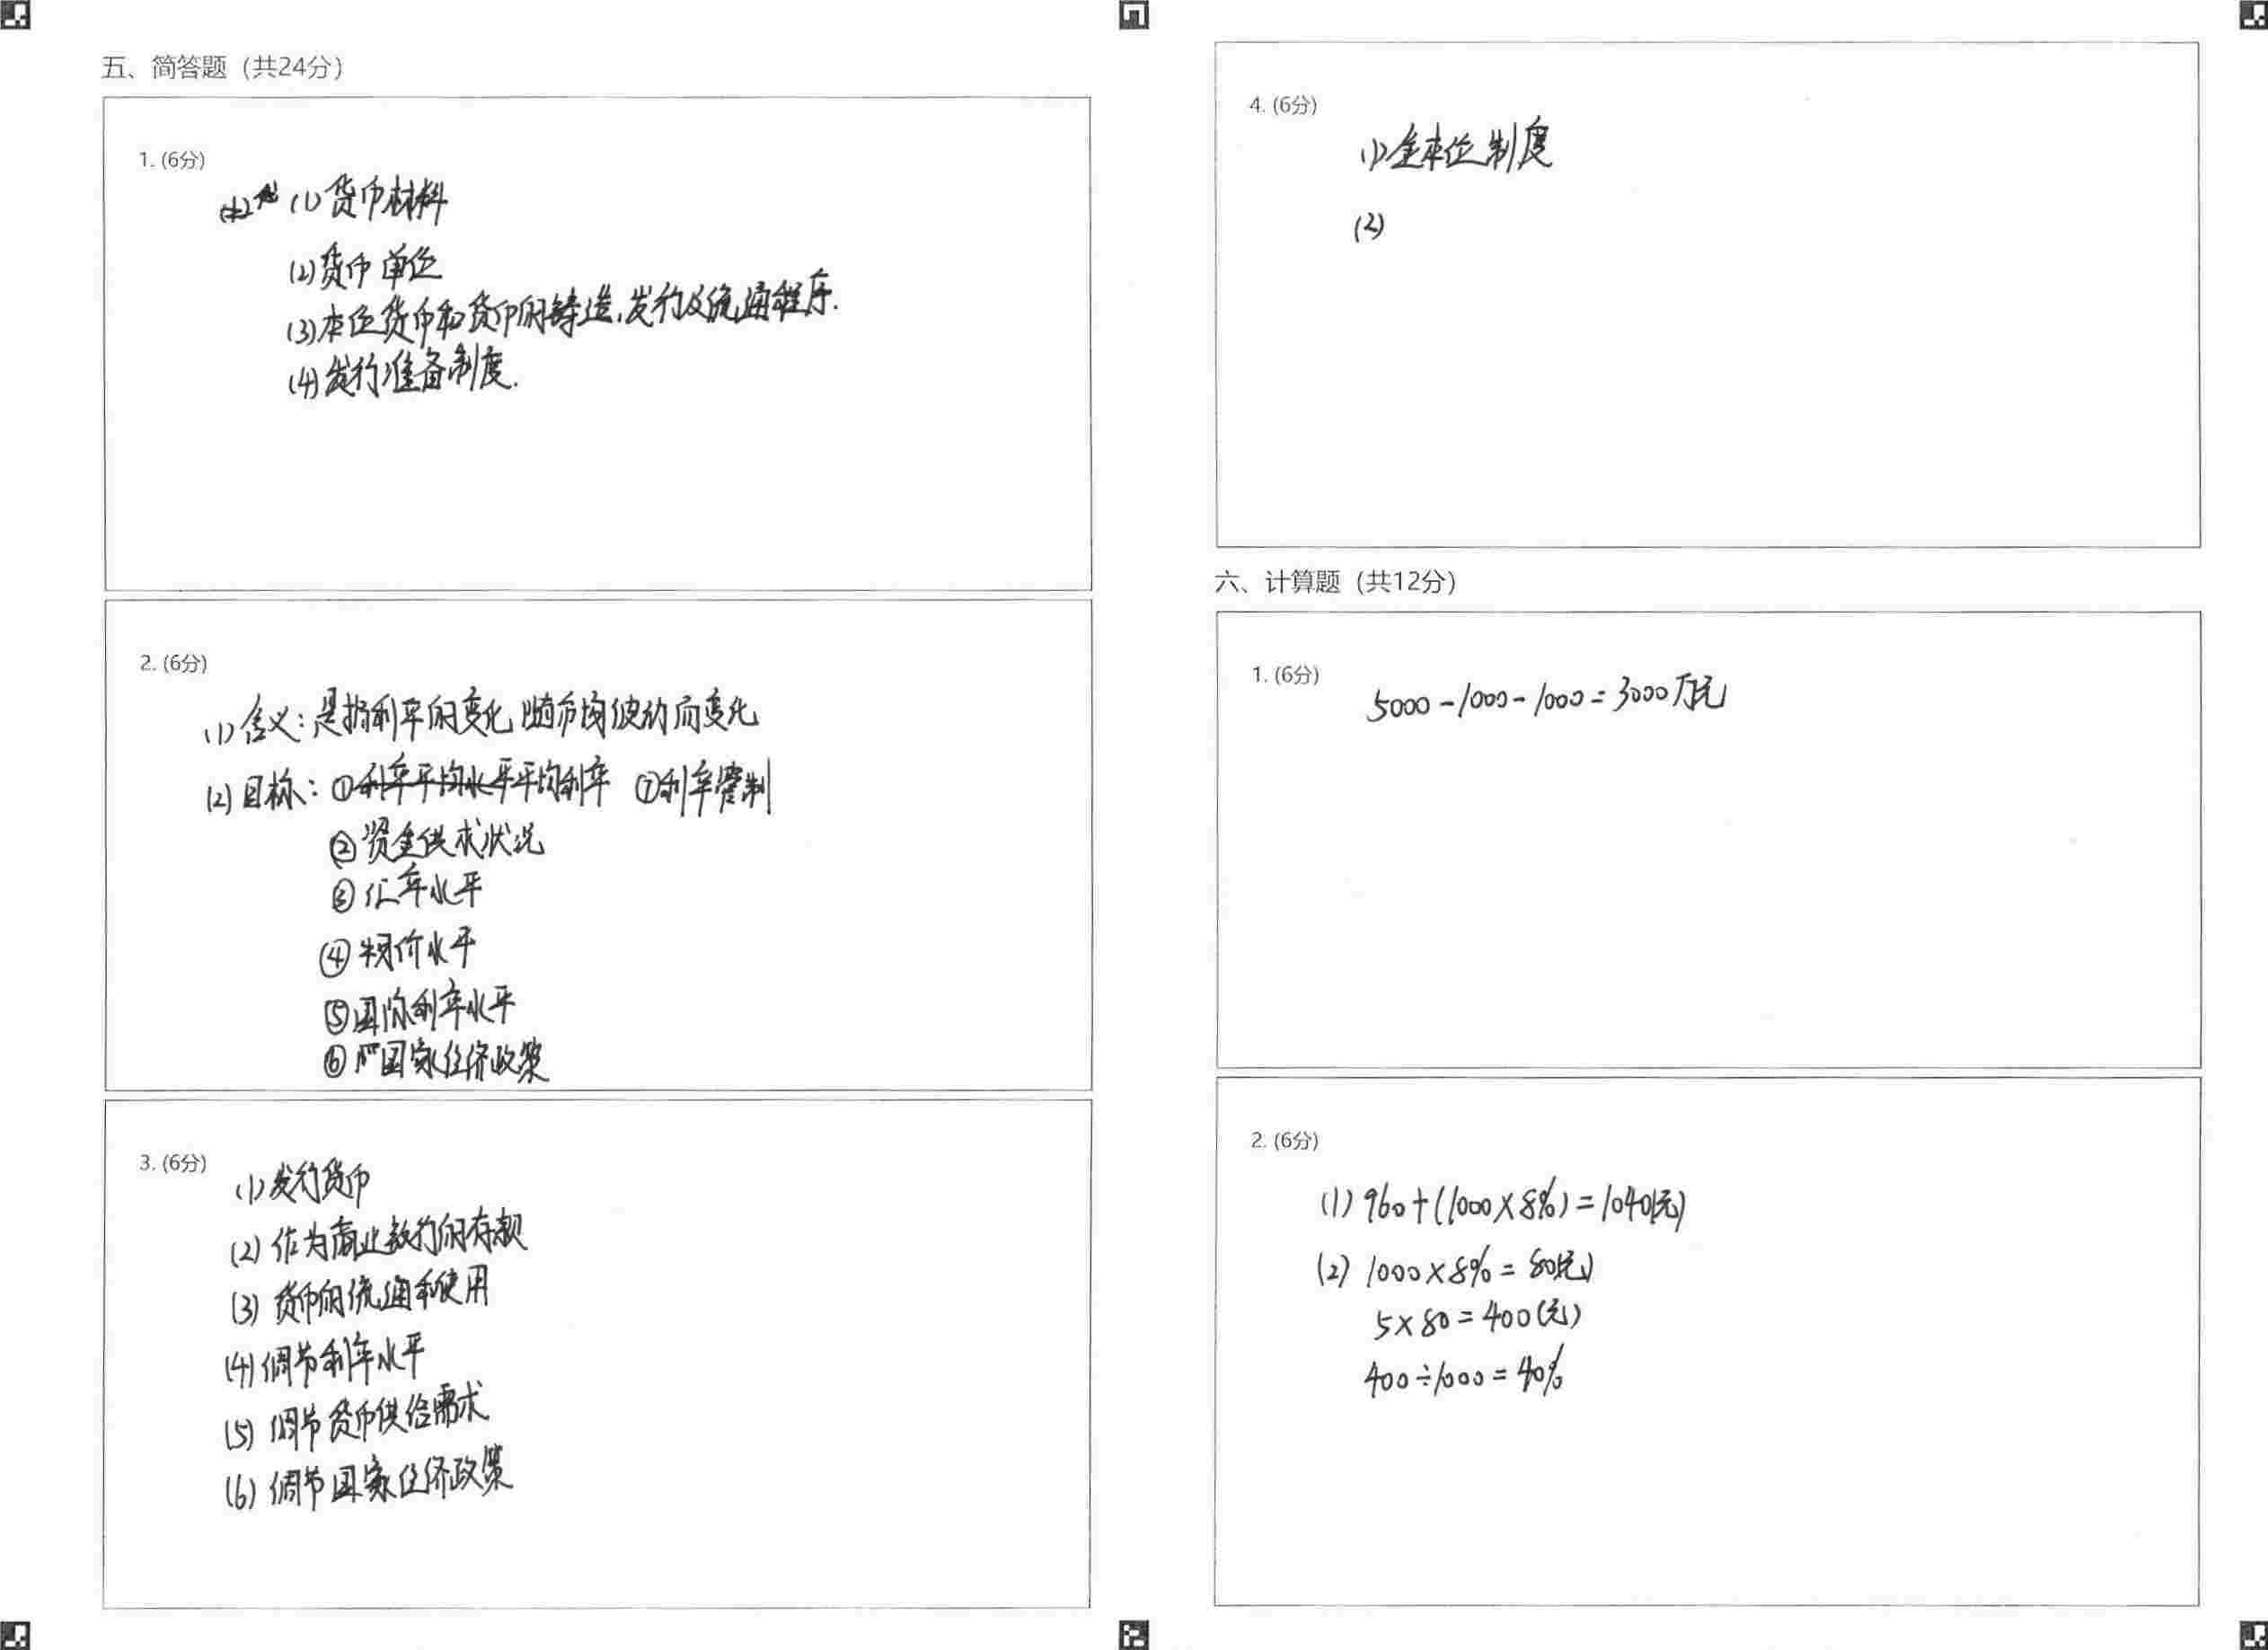 五、简答题（共24分）
1. (6分)
(1) 货币材料
(2) 货币单位
(3) 本位货币和货币的铸造、发行及流通程序.
(4) 发行准备制度.
2. (6分)
(1) 含义：是指利率的变化随市场波动而变化
(2) 目标：① 平均利率 ⑦利率管制
② 资金供求状况
③ 汇率水平
④ 物价水平
⑤ 国际利率水平
⑥ 国家经济政策
3. (6分)
(1) 发行货币
(2) 作为商业银行的存款
(3) 货币的流通和使用
(4) 调节利率水平
(5) 调节货币供给需求
(6) 调节国家经济政策
4. (6分)
(1) 金本位制度
(2)
六、计算题（共12分）
1. (6分)
5000-1000-1000=3000万元
2. (6分)
(1) 960+(1000×8%)=1040(元)
(2) 1000×8%=80(元)
5×80=400(元)
400÷1000=40%